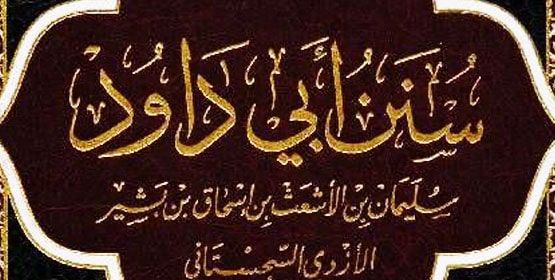 سُنَن أَبِي دَاوُد
سُلَيمَان بن الأشعَث بن إسحَاق بن بَشِير
الأزدي السِّجِستاني